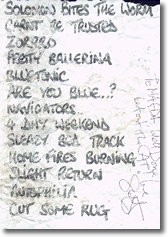 SOLOMON BITES THE WORM
CAN'T BE TRUSTED
ZORRRO
FERTY BALLERINA
BLUETONIC
ARE YOU BLUE..?
NAVIGATORS..
4 DAY WEEKEND
SLEAZY BED TRACK
HOME FIRES BURNING
SLIGHT RETURN
AUTOPHILIA
CUT SOME RUG